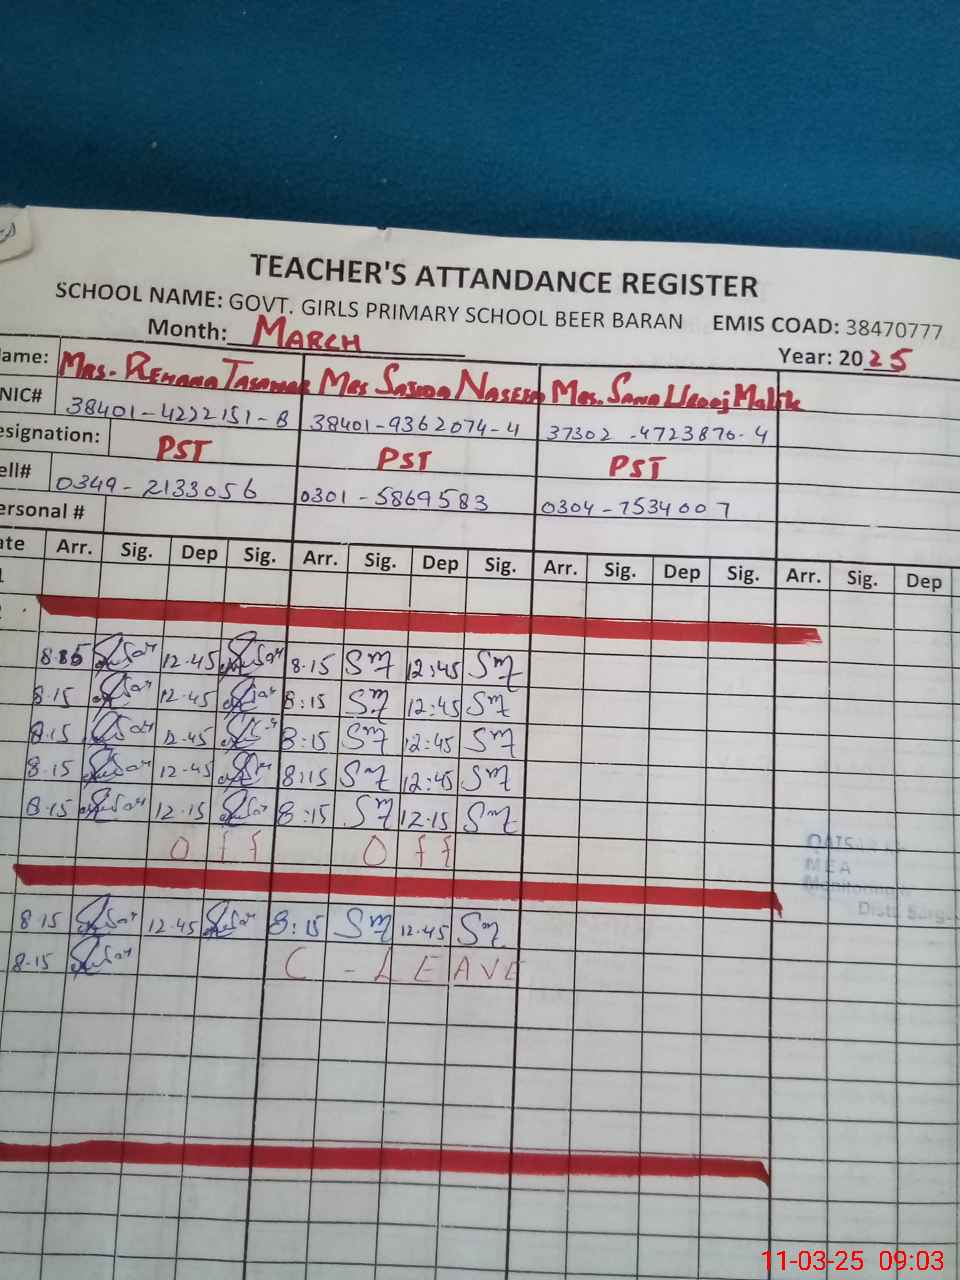 TEACHER'S ATTANDANCE REGISTER
SCHOOL NAME: GOVT. GIRLS PRIMARY SCHOOL BEER BARAN EMIS COAD: 38470777
Month: MARCH Year: 2025
ame: Mrs. REHANA TASAWAR Mrs SAJIDA NASEEM Mrs. SANA UROOJ MALIK
NIC# 38401-4222151-8 38401-9362074-4 37302-4723876-4
esignation: PST PST PST
ell# 0349-2133056 0301-5869583 0304-7534007
ersonal #
ate Arr. Sig. Dep Sig. Arr. Sig. Dep Sig. Arr. Sig. Dep Sig. Arr. Sig. Dep
1
8.15 12.45 8.15 12:45
8.15 12.45 8:15 12:45
8.15 12.45 8:15 12:45
8.15 12.45 8:15 12:45
8.15 12.15 8:15 12.15
Off Off
MEA
8.15 12.45 8:15 12.45
8.15 C-LEAVE
11-03-25 09:03